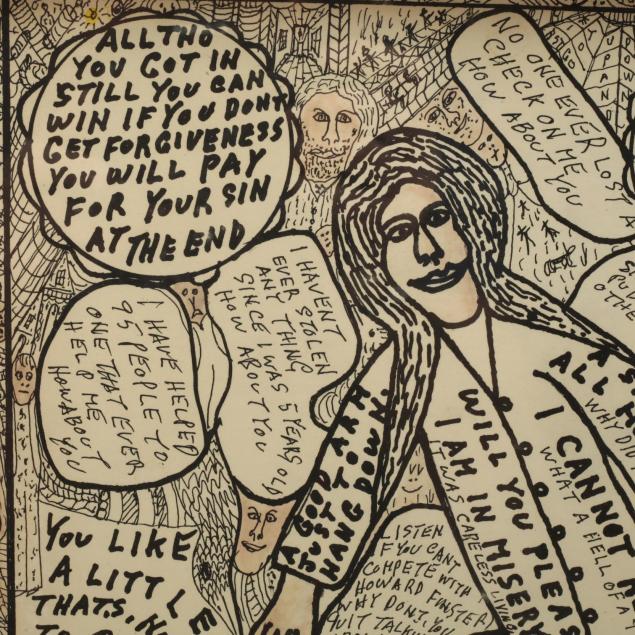 ALLTHO
YOU GOT IN
STILL YOU CAN
WIN IF YOU DONT
GET FORGIVENESS
YOU WILL PAY
FOR YOUR SIN
AT THE END
NO ONE EVER LOST A
CHECK ON ME
HOW ABOUT YOU
I HAVENT
EVER STOLEN
ANY THING
SINCE I WAS 5 YEARS OLD
HOW ABOUT YOU
I HAVE HELPED
95 PEOPLE TO
ONE THAT EVER
HELP ME
HOW ABOUT
YOU
A GOOD ARM
JUST TO
HANG DOWN.
WILL YOU PLEAS
I AM IN MISERY
IT WAS CARELESS LIVING
ALL
WHY DID
I CANNOT
WHAT A HELL OF A
YOU LIKE
A LITTLE
THATS,
LISTEN
IF YOU CANT
COMPETE WITH
HOWARD FINSTER
WHY DONT, YOU
QUIT TALKIN